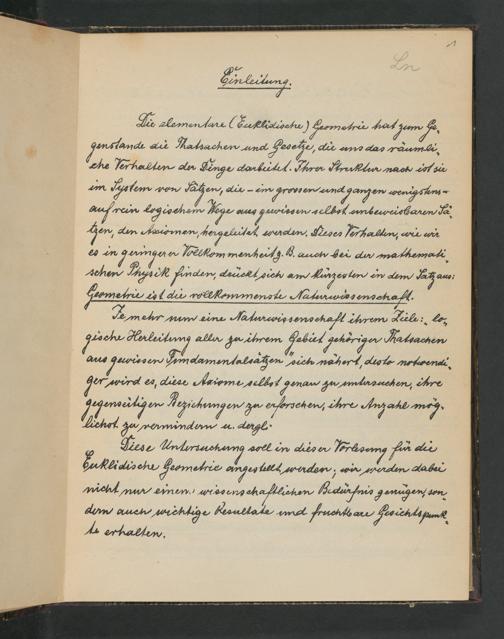 1
Ln
Einleitung.
Die elementare (Euklidische) Geometrie hat zum Ge-
genstande die Thatsachen und Gesetze, die uns das räumli-
che Verhalten der Dinge darbietet. Ihrer Struktur nach ist sie
ein System von Sätzen, die – im grossen und ganzen wenigstens –
auf rein logischem Wege aus gewissen selbst unbeweisbaren Sä-
tzen, den Axiomen, hergeleitet werden. Dieses Verhalten, wie wir
es in geringerer Vollkommenheit z. B. auch bei der mathemati-
schen Physik finden, drückt sich am kürzesten in dem Satz aus:
Geometrie ist die vollkommenste Naturwissenschaft.
Je mehr nun eine Naturwissenschaft ihrem Ziele: „lo-
gische Herleitung aller zu ihrem Gebiet gehöriger Thatsachen
aus gewissen Fundamentalsätzen" sich nähert, desto notwendi-
ger wird es, diese Axiome selbst genau zu untersuchen, ihre
gegenseitigen Beziehungen zu erforschen, ihre Anzahl mög-
lichst zu vermindern u. dergl.
Diese Untersuchung soll in dieser Vorlesung für die
Euklidische Geometrie angestellt werden; wir werden dabei
nicht nur einem wissenschaftlichen Bedürfnis genügen, son-
dern auch wichtige Resultate und fruchtbare Gesichtspunk-
te erhalten.